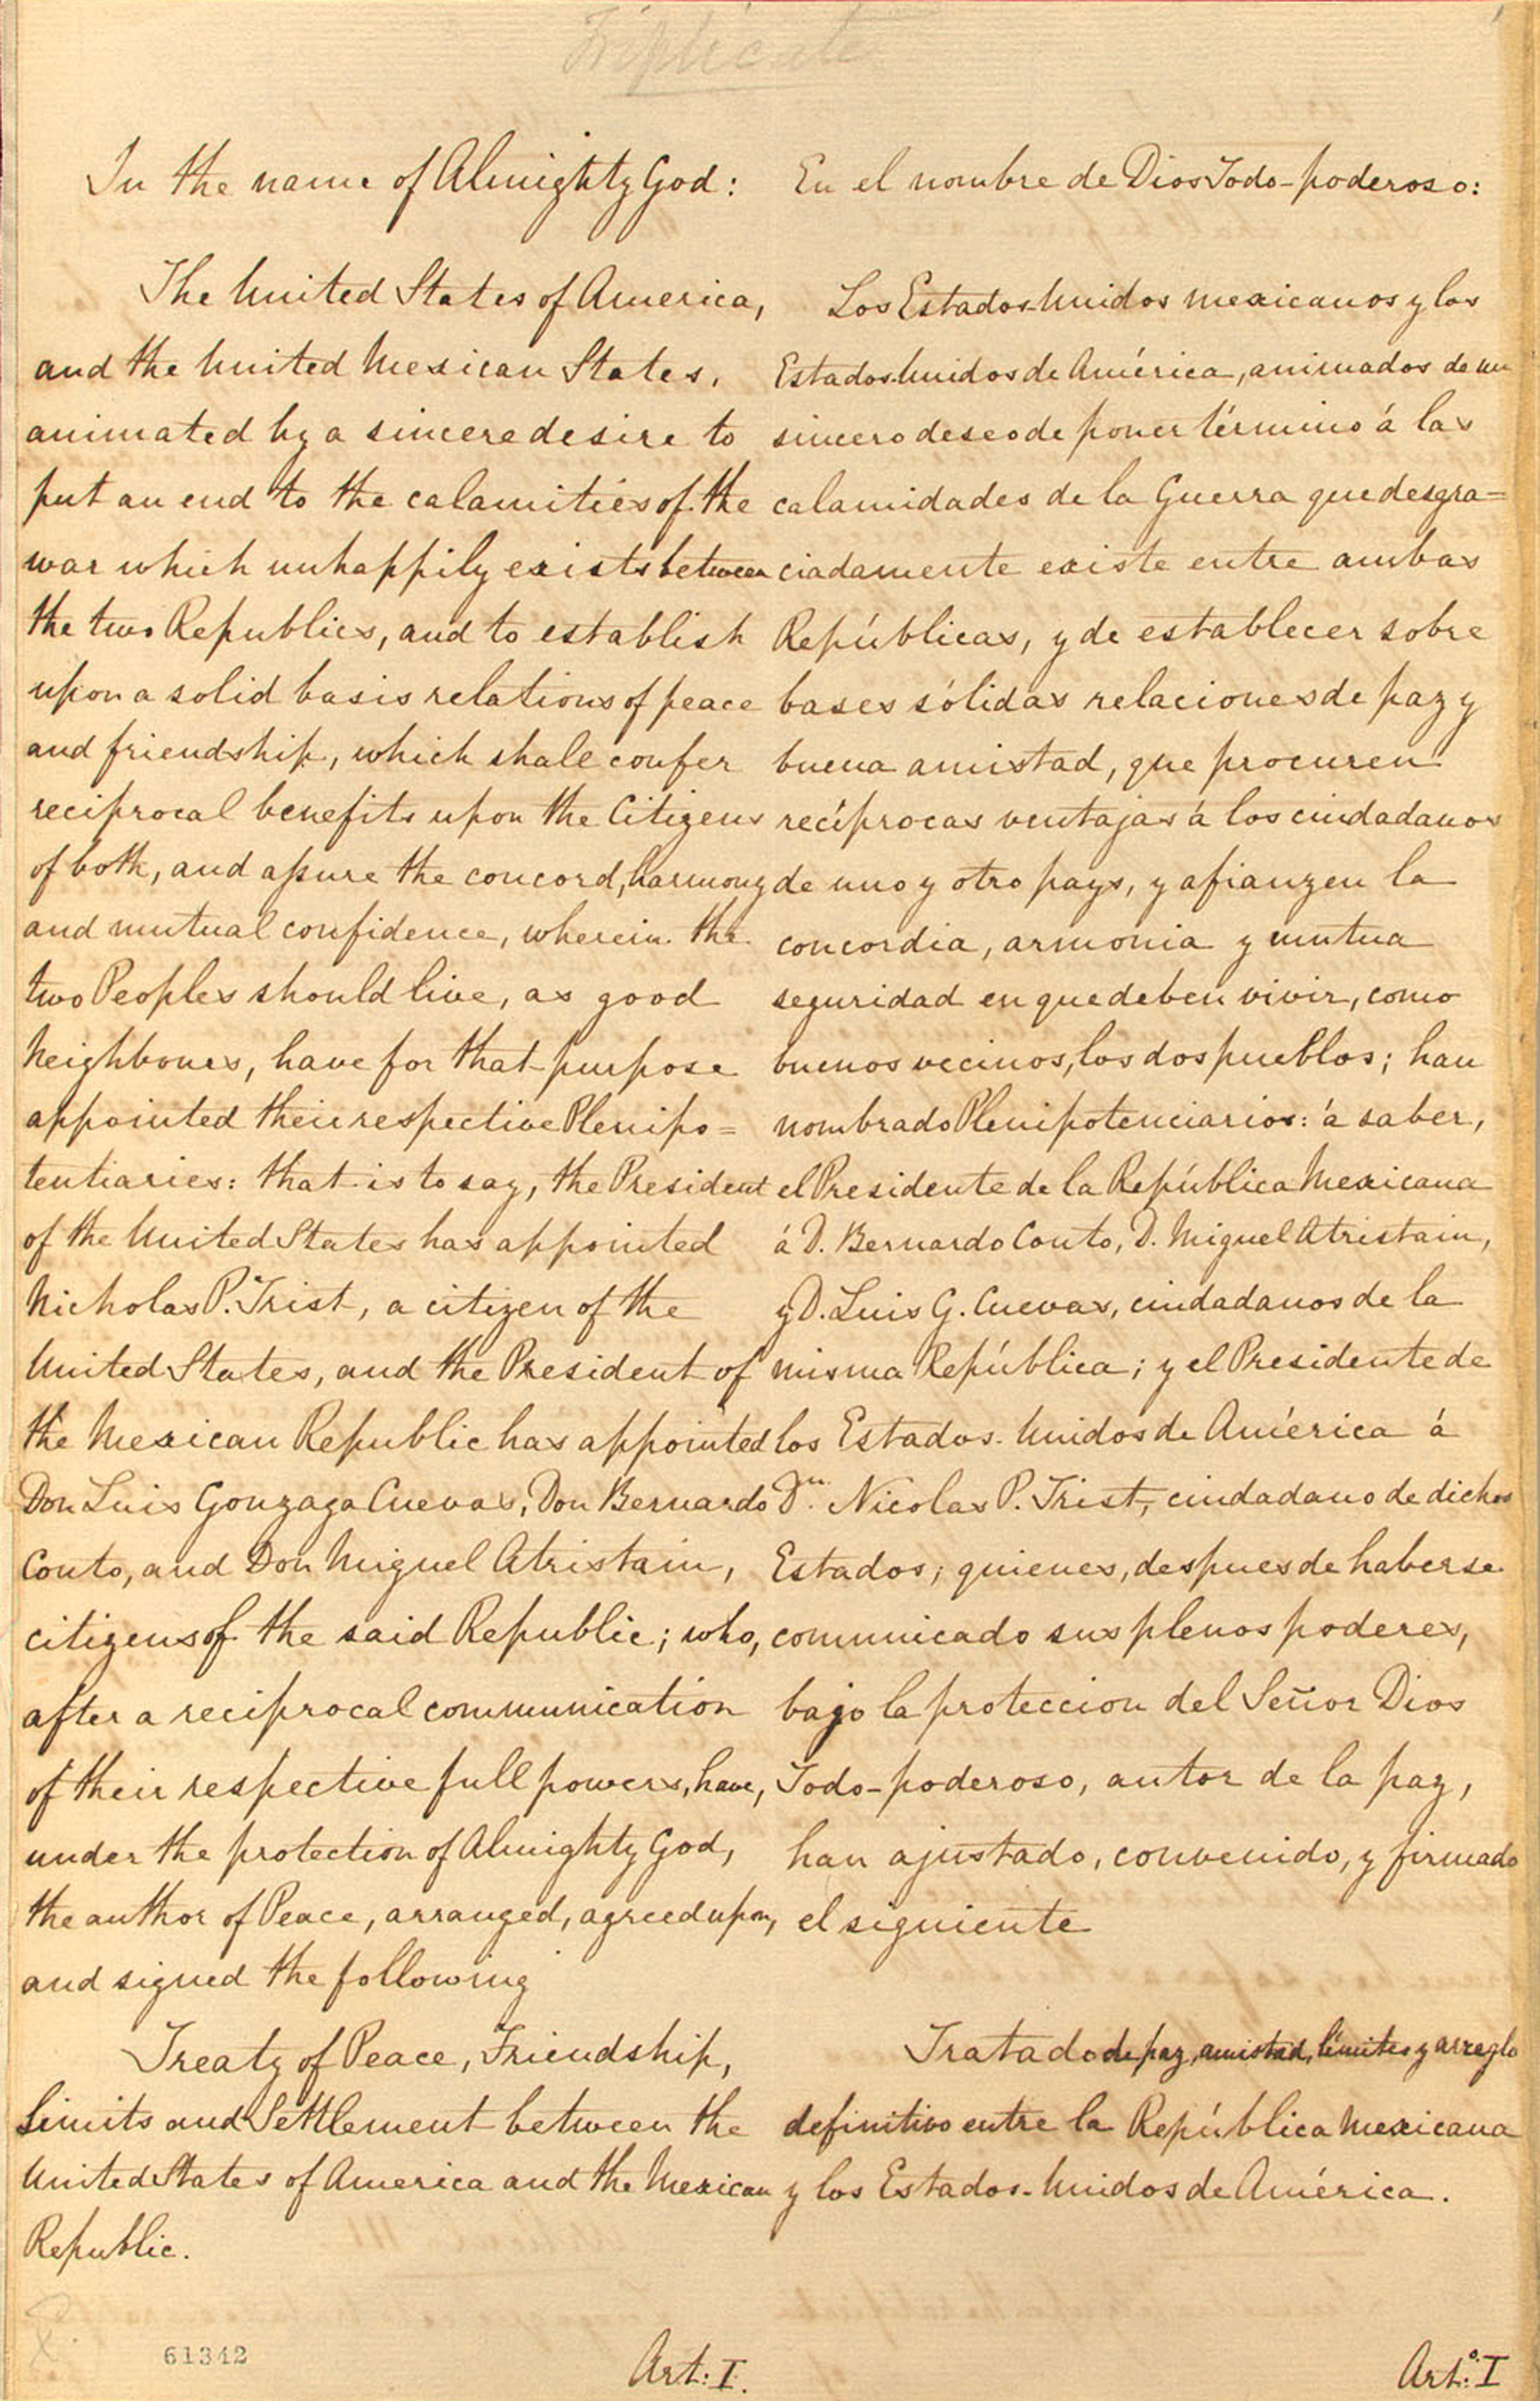 Triplicate
In the name of Almighty God:
The United States of America,
and the United Mexican States,
animated by a sincere desire to
put an end to the calamities of the
war which unhappily exists between
the two Republics, and to establish
upon a solid basis relations of peace
and friendship, which shall confer
reciprocal benefits upon the Citizens
of both, and assure the concord, harmony
and mutual confidence, wherein the
two Peoples should live, as good
Neighbours, have for that purpose
appointed their respective Plenipo=
tentiaries: that is to say, the President
of the United States has appointed
Nicholas P. Trist, a citizen of the
United States, and the President of
the Mexican Republic has appointed
Don Luis Gonzaga Cuevas, Don Bernardo
Couto, and Don Miguel Atristain,
citizens of the said Republic; who,
after a reciprocal communication
of their respective full powers, have,
under the protection of Almighty God,
the author of Peace, arranged, agreed upon,
and signed the following
Treaty of Peace, Friendship,
Limits and Settlement between the
United States of America and the Mexican
Republic.
61342
Art: I.
En el nombre de Dios Todo-poderoso:
Los Estados-Unidos mexicanos y los
Estados-Unidos de América, animados de un
sincero deseo de poner término á las
calamidades de la Guerra que desgra=
ciadamente existe entre ambas
Repúblicas, y de establecer sobre
bases sólidas relaciones de paz y
buena amistad, que procuren
recíprocas ventajas á los ciudadanos
de uno y otro pays, y afianzen la
concordia, armonia y mutua
seguridad en que deben vivir, como
buenos vecinos, los dos pueblos; han
nombrado Plenipotenciarios: á saber,
el Presidente de la República Mexicana
á D. Bernardo Couto, D. Miguel Atristain,
y D. Luis G. Cuevas, ciudadanos de la
misma República; y el Presidente de
los Estados-Unidos de América á
Dn. Nicolas P. Trist, ciudadano de dichos
Estados; quienes, despues de haberse
comunicado sus plenos poderes,
bajo la proteccion del Señor Dios
Todo-poderoso, autor de la paz,
han ajustado, convenido, y firmado
el siguiente
Tratado de paz, amistad, límites y arreglo
definitivo entre la República Mexicana
y los Estados-Unidos de América.
Arto: I